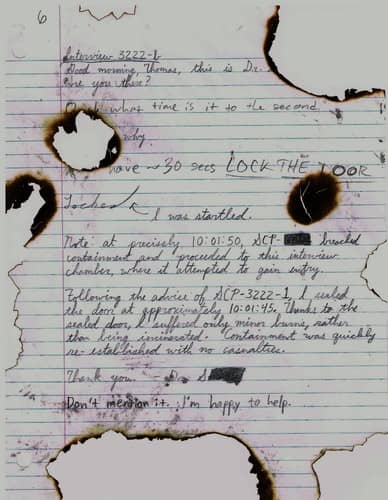 6
Interview 3222-1
Good morning, Thomas, this is Dr.
Are you there?
what time is it to the second
why
have ~30 secs LOCK THE DOOR
Locked
I was startled.
Note: at precisely 10:01:50, SCP- breached
containment and proceeded to this interview
chamber, where it attempted to gain entry.
Following the advice of SCP-3222-1, I sealed
the door at approximately 10:01:45. Thanks to the
sealed door, I suffered only minor burns, rather
than being incinerated. Containment was quickly
re-established with no casualties.
Thank you. - Dr. S
Don't mention it. I'm happy to help.